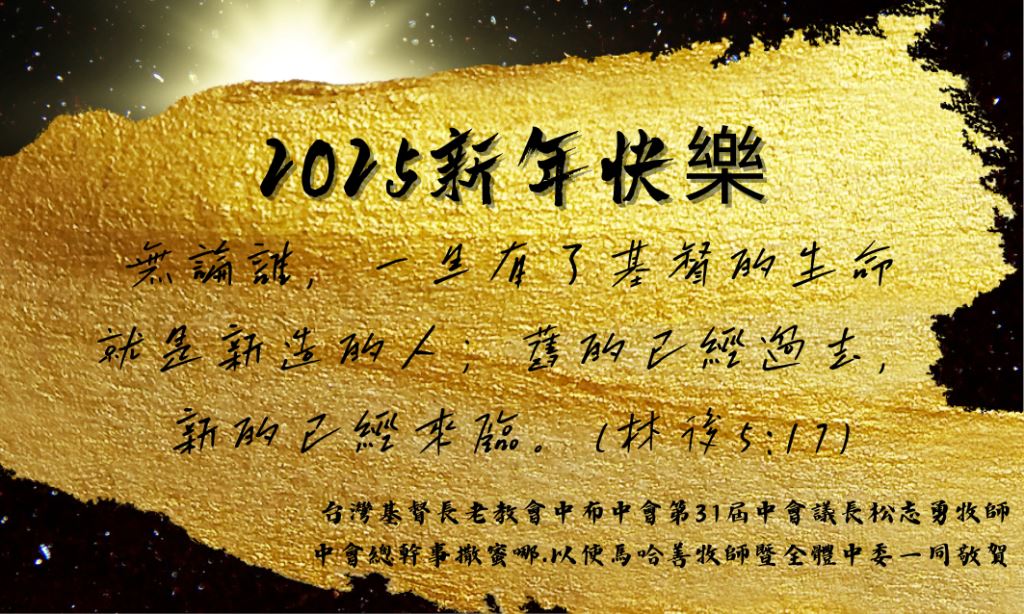 2025新年快樂
無論誰，一旦有了基督的生命
就是新造的人；舊的已經過去，
新的已經來臨。(林後5:17)
台灣基督長老教會中布中會第31屆中會議長松志勇牧師
中會總幹事撒蜜哪.以便馬哈善牧師暨全體中委一同敬賀